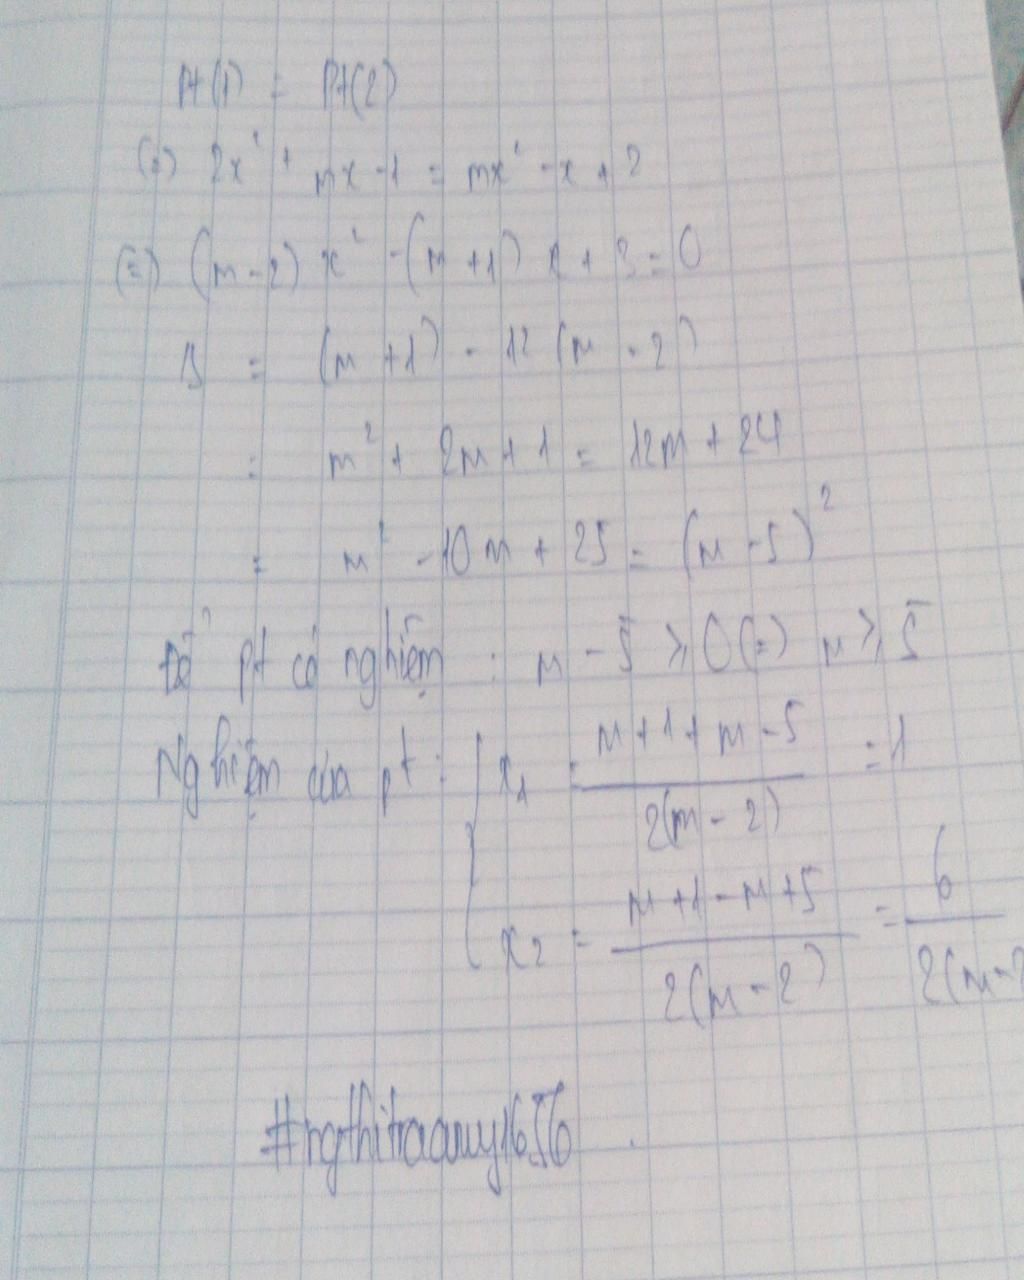 Pt(1) = Pt(2)
(=) 2x² + mx - 1 = mx² - x + 2
(=) (m - 2) x² - (m + 1) x + 3 = 0
Δ = (m + 1) - 12 (m - 2)
= m² + 2m + 1 = 12m + 24
= m² - 10m + 25 = (m - 5)²
Để pt có nghiệm : m - 5 ≥ 0 (=) m ≥ 5
Nghiệm của pt : { x1 = (m + 1 + m - 5) / 2(m - 2) = 1
x2 = (m + 1 - m + 5) / 2(m - 2) = 6 / 2(m - 2
#ngthitraamy1656